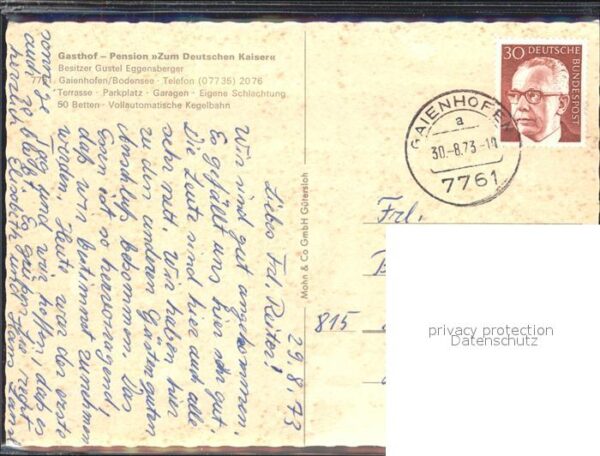 Gasthof – Pension »Zum Deutschen Kaiser«
Besitzer Gustel Eggensberger
7761 Gaienhofen/Bodensee · Telefon (0 77 35) 2076
Terrasse · Parkplatz · Garagen · Eigene Schlachtung
50 Betten · Vollautomatische Kegelbahn
29.8.73
Liebes Frl. Reiter!
Wir sind gut angekommen.
Es gefällt uns hier sehr gut.
Die Leute sind hier auch alle
sehr nett. Wir haben hier
zu den anderen Gästen guten
Anschluß bekommen. Das
Essen ist so hervorragend,
daß wir bestimmt zunehmen
werden. Heute war der erste
sonnige Tag und wir hoffen, daß es
auch so bleibt. Es grüßen Sie recht
herzlich
Mohn & Co GmbH Gütersloh
30 DEUTSCHE
BUNDESPOST
GAIENHOFEN
a
30.-8.73-18
7761
Frl.
815
privacy protection
Datenschutz